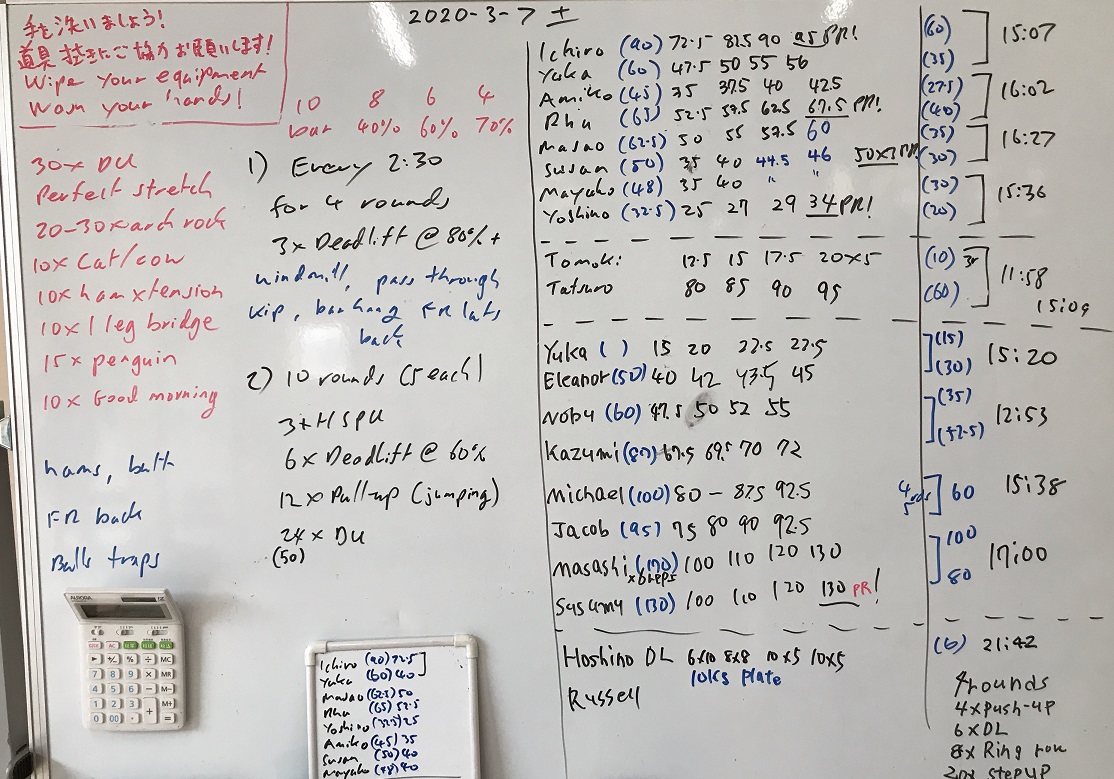 2020-3-7 ±
手を洗いましょう!
道具拭きにご協力お願いします!
Wipe your equipment
Wash your hands!
10 8 6 4
bar 40% 60% 70%
30x DU
Perfect stretch
20-30x arch rock
10x Cat/cow
10x ham xtension
10x 1 leg bridge
15x penguin
10x Good morning
hams, butt
FR back
Balls traps
1) Every 2:30
for 4 rounds
3x Deadlift @ 80%+
windmill, pass through
Kip, banhang FR lats
back
2) 10 rounds (5 each)
3x HSPU
6x Deadlift @ 60%
12x Pull-up (jumping)
24x DU
(50)
Ichiro (90) 72.5 82.5 90 95 PR!
Yuka (60) 47.5 50 55 56
Amiko (45) 35 37.5 40 42.5
Rhu (65) 52.5 57.5 62.5 67.5 PR!
Masao (62.5) 50 55 57.5 60
Susan (50) 35 40 44.5 46 50x3 PR
Mayuko (48) 35 40 " "
Yoshino (32.5) 25 27 29 34 PR!
Tomoki 12.5 15 17.5 20x5
Tatsuro 80 85 90 95
Yuka ( ) 15 20 22.5 27.5
Eleanor (50) 40 42 43.5 45
Noby (60) 47.5 50 52 55
Kazumi (80) 67.5 69.5 70 72
Michael (100) 80 - 87.5 92.5
Jacob (95) 75 80 90 92.5
Masashi (170) 100 110 120 130
x6 reps
Susumu (130) 100 110 120 130 PR!
Hoshino DL 6x10 8x8 10x5 10x5
10kg plate
Russell
(60)
(35)
15:07
(27.5)
(40)
16:02
(35)
(30)
16:27
(30)
(20)
15:36
(10) 3r
(60)
11:58
15:09
(15)
(30)
15:20
(35)
(42.5)
12:53
4 rds
5
60
15:38
100
80
17:00
(6) 21:42
9 rounds
4x push-up
6x DL
8x Ring row
20x step up
AURORA
Ichiro (90) 72.5
Yuka (60) 40
Masao (62.5) 50
Rhu (65) 52.5
Yoshino (32.5) 25
Amiko (45) 35
Susan (50) 40
Mayuko (48) 40